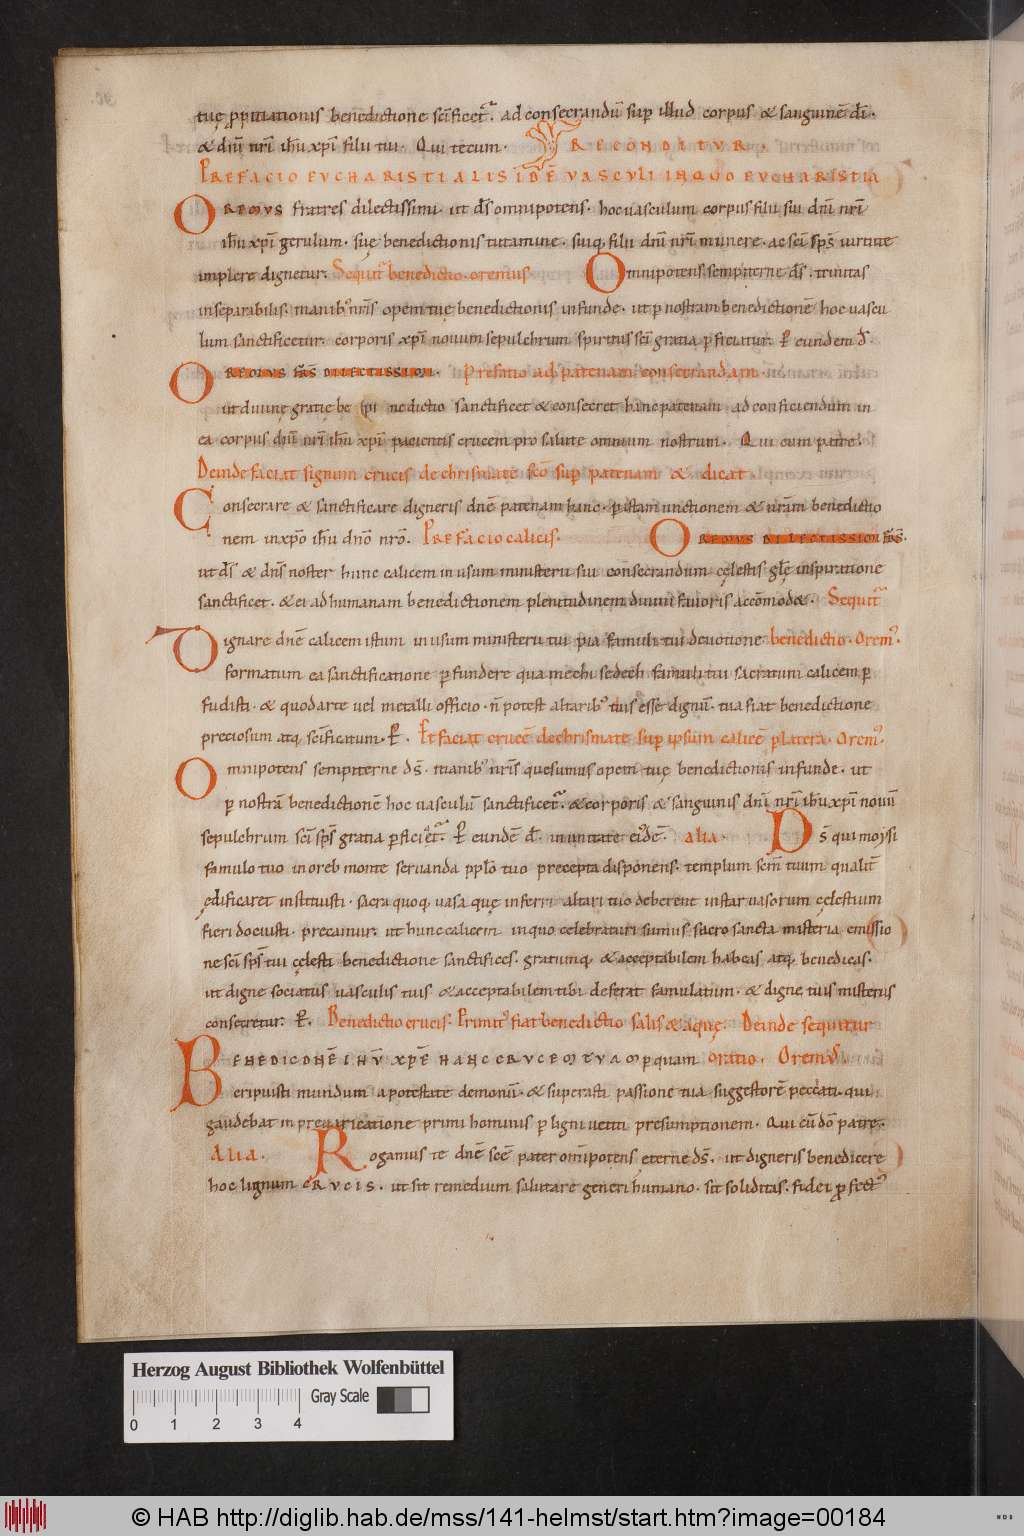 tuę ppitiationis benedictione scĩficet᷑. ad consecrandũ sup illud corpus & sanguinẽ dñi.
& dñi nr̃i ihũ xpi filii tui. Qui tecum.
RECONDITVR.
PREFACIO EVCHARISTIALIS IDẼ VASCVLI INQVO EVCHARISTIA
OREMVS fratres dilectissimi. ut ds̃ omnipotens. hoc uasculum corpus filii sui dñi nr̃i
ihũ xpi gerulum. suę benedictionis tutamine. suiq, filii dñi nr̃i munere. ac sc̃i sp̃s uirtute
implere dignetur. Sequit᷑ benedictio. oremus
Omnipotens sempiterne ds̃. trinitas
inseparabilis. manib; nr̃is opem tuę benedictionis infunde. ut p nostram benedictionẽ hoc uascu
lum sanctificetur. corporis xpi nouum sepulchrum spiritus sc̃i gratia pficiatur. P eundem d.
OREMVS FR̃S DILECTISSIMI. Prefatio ad patenam consecrandam.
ut diuinę gratię be nedictio sanctificet & consecret hanc patenam. ad conficiendum in
ea corpus dñi nr̃i ihũ xpi pacientis crucem pro salute omnium nostrum. Qui cum patre.
Deinde faciat signum crucis de chrismate sc̃o sup patenam & dicat.
Consecrare & sanctificare digneris dñe patenam hanc. p istam unctionem & nr̃am benedictio
nem in xp̃o ihũ dño nr̃o. PREFACIO calicis.
OREMVS DILECTISSIMI FR̃S.
ut ds̃ & dñs noster hunc calicem in usum ministerii sui consecrandum cęlestis glẽ inspiratione
sanctificet. & ei ad humanam benedictionem plenitudinem diuini fauoris accõmod&. Sequit᷑
Dignare dñe calicem istum in usum ministerii tui pia famuli tui deuotione benedictio. Orem;.
formatum ea sanctificatione pfundere qua melchisedech famuli tui sacratum calicem p
fudisti. & quod arte uel metalli officio. ñ potest altarib; tuis esse dignũ. tua fiat benedictione
preciosum atq, scĩficatum. P. Et faciat crucẽ de chrismate sup ipsum calicẽ p latera. Orem;.
Omnipotens sempiterne ds̃. manib; nr̃is quesumus opem tuę benedictionis infunde. ut
p nostrã benedictionẽ hoc uasculũ sanctificet᷑. & corporis & sanguinis dñi nr̃i ihũ xpi nouũ
sepulchrum sc̃i sp̃s gratia pficiet᷑. P eundẽ d. in unitate ei;dẽ. alia.
Ds̃ qui moysi
famulo tuo in oreb monte seruanda pplo tuo precepta disponens. templum sc̃m tuum qualit̃
ędificaret instituisti. sacra quoq, uasa quę inferri altari tuo deberent instar uasorum cęlestium
fieri docuisti. precamur. ut hunc calicem in quo celebraturi sumus sacro sancta misteria emissio
ne sc̃i sp̃s tui cęlesti benedictione sanctifices. gratumq, & acceptabilem habeas atq, benedicas.
ut digne sociatus uasculis tuis & acceptabilem tibi deferat famulatum. & digne tuis misteriis
consecretur. P. Benedictio crucis. Primit; fiat benedictio salis & aquę. Deinde sequitur
BENEDIC DNẼ IHV XPE HANC CRVCEM TVAM p quam oratio. Orem;.
eripuisti mundum a potestate demonũ. & superasti passione tua suggestorẽ peccati. qui
gaudebat in preuaricatione primi hominis p ligni uetiti presumptionem. Qui cũ dõ patre.
Alia.
Rogamus te dñe sc̃e pater om̃ipotens eterne ds̃. ut digneris benedicere
hoc lignum CRVCIS. ut sit remedium salutare generi humano. sit soliditas. fidei pfect;
Herzog August Bibliothek Wolfenbüttel
Gray Scale
0 1 2 3 4
© HAB http://diglib.hab.de/mss/141-helmst/start.htm?image=00184